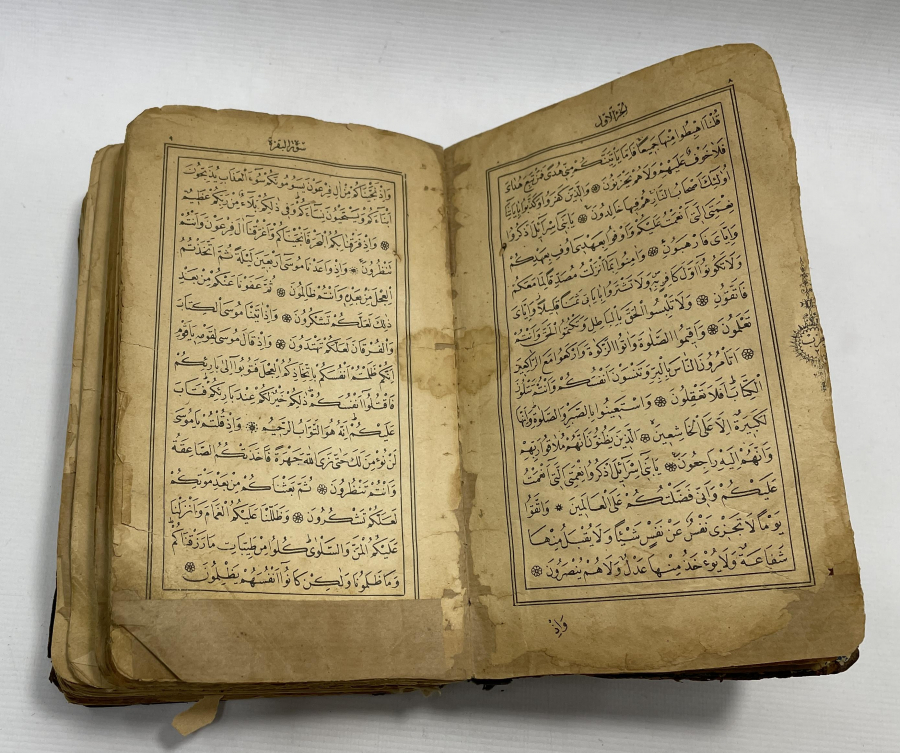 ٨
الجزء الاول
قُلْنَا اهْبِطُوا مِنْهَا جَمِيعًا فَاِمَّا يَأْتِيَنَّكُمْ مِنِّي هُدًى فَمَنْ تَبِعَ هُدَايَ
فَلَا خَوْفٌ عَلَيْهِمْ وَلَا هُمْ يَحْزَنُونَ ۞ وَالَّذِينَ كَفَرُوا وَكَذَّبُوا بِاٰيَاتِنَا
اُولٰئِكَ اَصْحَابُ النَّارِ هُمْ فِيهَا خَالِدُونَ ۞ يَا بَنِي اِسْرَائِيلَ اذْكُرُوا
نِعْمَتِيَ الَّتِي اَنْعَمْتُ عَلَيْكُمْ وَاَوْفُوا بِعَهْدِي اُوفِ بِعَهْدِكُمْ
وَاِيَّايَ فَارْهَبُونِ ۞ وَاٰمِنُوا بِمَا اَنْزَلْتُ مُصَدِّقًا لِمَا مَعَكُمْ
وَلَا تَكُونُوا اَوَّلَ كَافِرٍ بِهِ وَلَا تَشْتَرُوا بِاٰيَاتِي ثَمَنًا قَلِيلًا وَاِيَّايَ
فَاتَّقُونِ ۞ وَلَا تَلْبِسُوا الْحَقَّ بِالْبَاطِلِ وَتَكْتُمُوا الْحَقَّ وَاَنْتُمْ
تَعْلَمُونَ ۞ وَاَقِيمُوا الصَّلٰوةَ وَاٰتُوا الزَّكٰوةَ وَارْكَعُوا مَعَ الرَّاكِعِينَ
۞ اَتَأْمُرُونَ النَّاسَ بِالْبِرِّ وَتَنْسَوْنَ اَنْفُسَكُمْ وَاَنْتُمْ تَتْلُونَ
الْكِتَابَ اَفَلَا تَعْقِلُونَ ۞ وَاسْتَعِينُوا بِالصَّبْرِ وَالصَّلٰوةِ وَاِنَّهَا
لَكَبِيرَةٌ اِلَّا عَلَى الْخَاشِعِينَ ۞ الَّذِينَ يَظُنُّونَ اَنَّهُمْ مُلَاقُوا رَبِّهِمْ
وَاَنَّهُمْ اِلَيْهِ رَاجِعُونَ ۞ يَا بَنِي اِسْرَائِيلَ اذْكُرُوا نِعْمَتِيَ الَّتِي اَنْعَمْتُ
عَلَيْكُمْ وَاَنِّي فَضَّلْتُكُمْ عَلَى الْعَالَمِينَ ۞ وَاتَّقُوا
يَوْمًا لَا تَجْزِي نَفْسٌ عَنْ نَفْسٍ شَيْئًا وَلَا يُقْبَلُ مِنْهَا
شَفَاعَةٌ وَلَا يُؤْخَذُ مِنْهَا عَدْلٌ وَلَا هُمْ يُنْصَرُونَ ۞
وَاِذْ
سورة البقرة
٩
وَاِذْ نَجَّيْنَاكُمْ مِنْ اٰلِ فِرْعَوْنَ يَسُومُونَكُمْ سُوءَ الْعَذَابِ يُذَبِّحُونَ
اَبْنَاءَكُمْ وَيَسْتَحْيُونَ نِسَاءَكُمْ وَفِي ذٰلِكُمْ بَلَاءٌ مِنْ رَبِّكُمْ عَظِيمٌ
۞ وَاِذْ فَرَقْنَا بِكُمُ الْبَحْرَ فَاَنْجَيْنَاكُمْ وَاَغْرَقْنَا اٰلَ فِرْعَوْنَ وَاَنْتُمْ
تَنْظُرُونَ ۞ وَاِذْ وَاعَدْنَا مُوسٰى اَرْبَعِينَ لَيْلَةً ثُمَّ اتَّخَذْتُمُ
الْعِجْلَ مِنْ بَعْدِهِ وَاَنْتُمْ ظَالِمُونَ ۞ ثُمَّ عَفَوْنَا عَنْكُمْ مِنْ بَعْدِ
ذٰلِكَ لَعَلَّكُمْ تَشْكُرُونَ ۞ وَاِذْ اٰتَيْنَا مُوسَى الْكِتَابَ
وَالْفُرْقَانَ لَعَلَّكُمْ تَهْتَدُونَ ۞ وَاِذْ قَالَ مُوسٰى لِقَوْمِهِ يَا قَوْمِ
اِنَّكُمْ ظَلَمْتُمْ اَنْفُسَكُمْ بِاتِّخَاذِكُمُ الْعِجْلَ فَتُوبُوا اِلٰى بَارِئِكُمْ
فَاقْتُلُوا اَنْفُسَكُمْ ذٰلِكُمْ خَيْرٌ لَكُمْ عِنْدَ بَارِئِكُمْ فَتَابَ
عَلَيْكُمْ اِنَّهُ هُوَ التَّوَّابُ الرَّحِيمُ ۞ وَاِذْ قُلْتُمْ يَا مُوسٰى
لَنْ نُؤْمِنَ لَكَ حَتّٰى نَرَى اللّٰهَ جَهْرَةً فَاَخَذَتْكُمُ الصَّاعِقَةُ
وَاَنْتُمْ تَنْظُرُونَ ۞ ثُمَّ بَعَثْنَاكُمْ مِنْ بَعْدِ مَوْتِكُمْ
لَعَلَّكُمْ تَشْكُرُونَ ۞ وَظَلَّلْنَا عَلَيْكُمُ الْغَمَامَ وَاَنْزَلْنَا
عَلَيْكُمُ الْمَنَّ وَالسَّلْوٰى كُلُوا مِنْ طَيِّبَاتِ مَا رَزَقْنَاكُمْ
وَمَا ظَلَمُونَا وَلٰكِنْ كَانُوا اَنْفُسَهُمْ يَظْلِمُونَ ۞